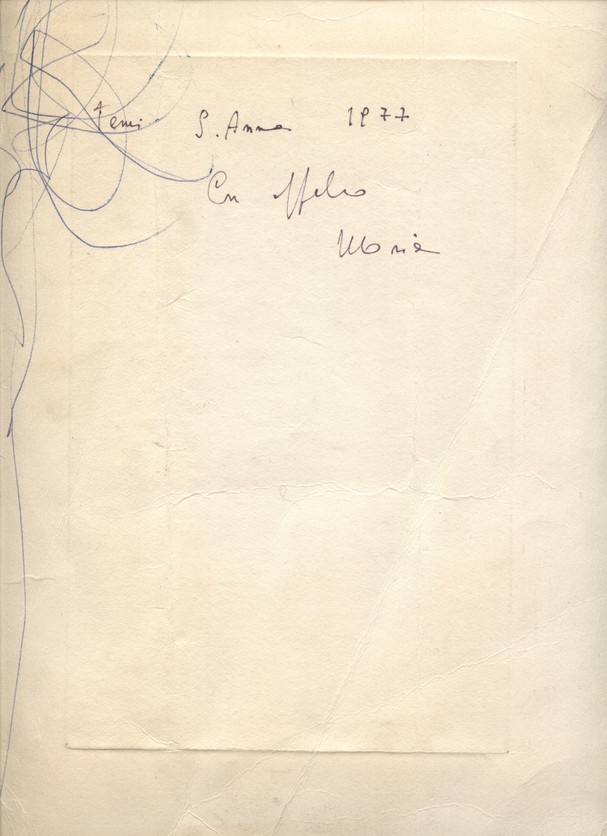 S. Anna 1977
Con affetto
Maria